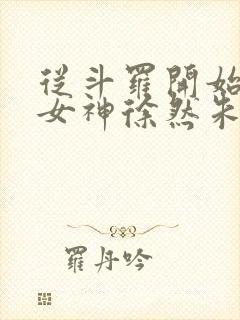 從斗羅開始
女神徐然朱
羅丹吟